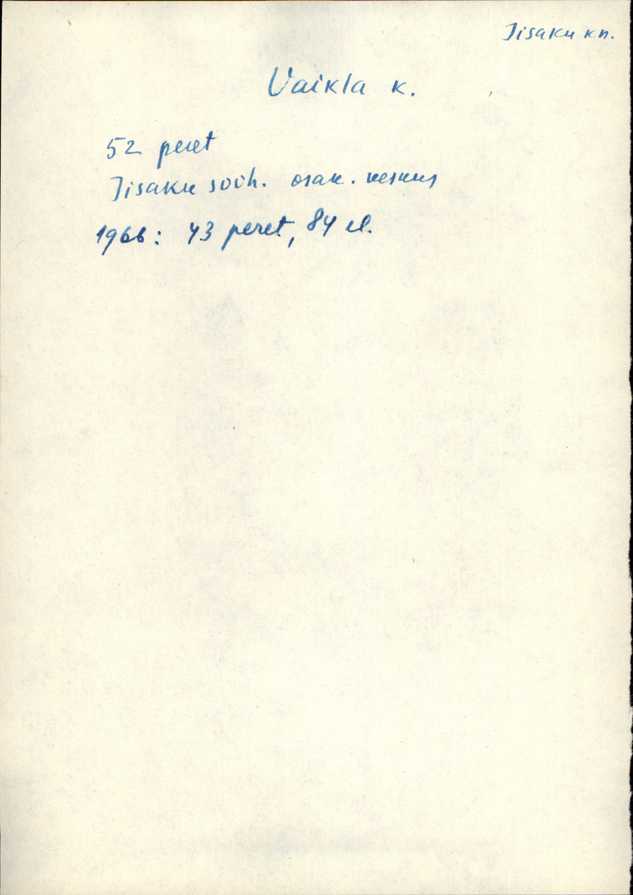 Iisaku kn.
Vaikla k.
52 peret
Iisaku sovh. osak. keskus
1966: 43 peret, 84 el.